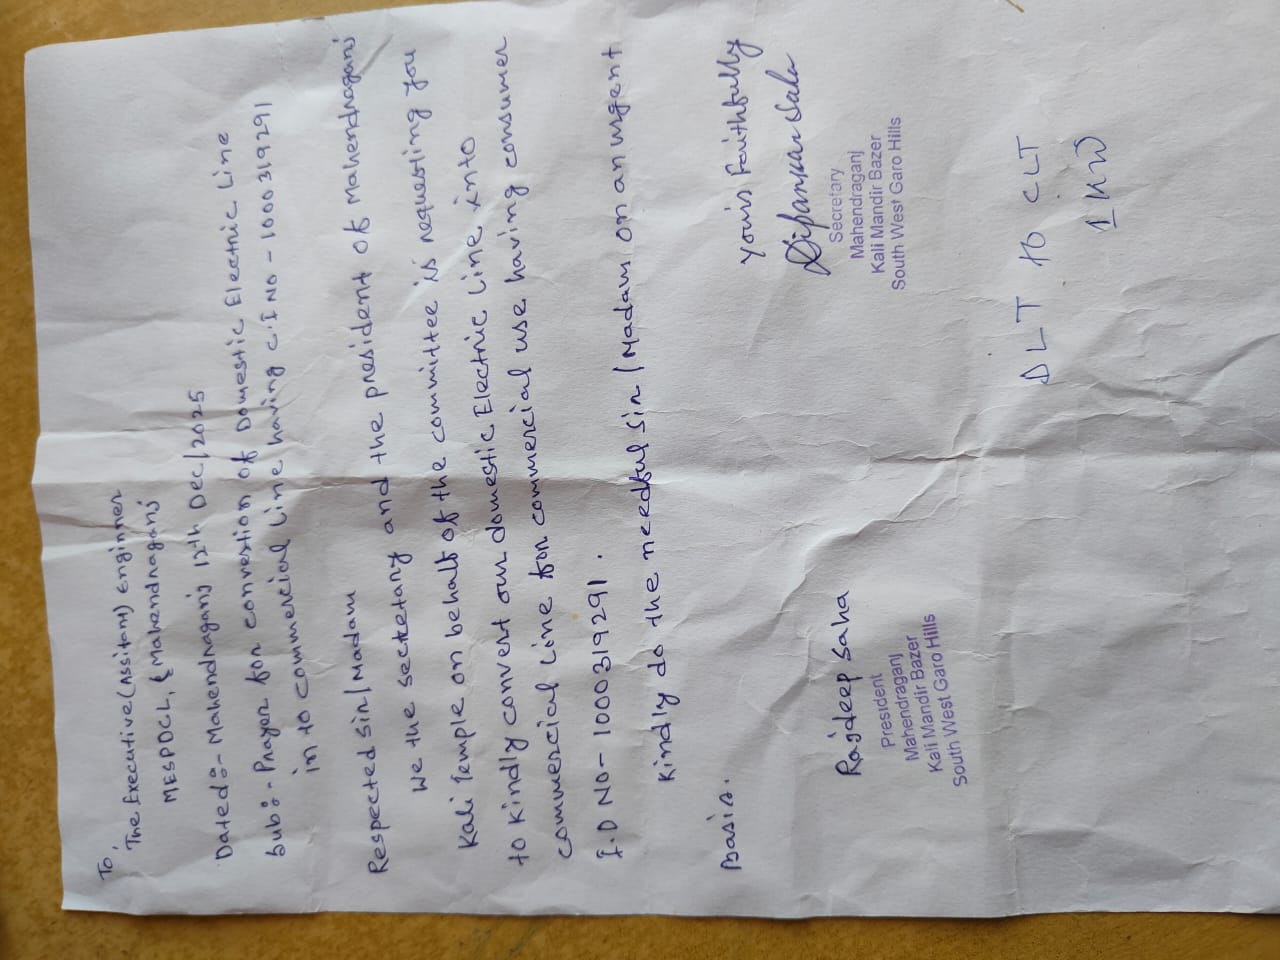 To,
The Executive (Assitant) Enginner
MESPDCL, { Mahendraganj
Dated:- Mahendraganj 12th Dec/2025
Sub:- Prayer for convertion of Domestic Electric Line
in to commercial line having C.I NO - 1000319291
Respected Sir/Madam
We the secretary and the president of Mahendraganj
Kali Temple on behalf of the committee is requesting you
to kindly convert our domestic Electric Line into
commercial line for commercial use having consumer
I.D NO- 1000319291.
Kindly do the needful Sir/Madam on an urgent
Basis.
Yours Faithfully
Dipankar Saha
Secretary
Mahendraganj
Kali Mandir Bazer
South West Garo Hills
Rajdeep Saha
President
Mahendraganj
Kali Mandir Bazer
South West Garo Hills
DLT to CLT
1 KW